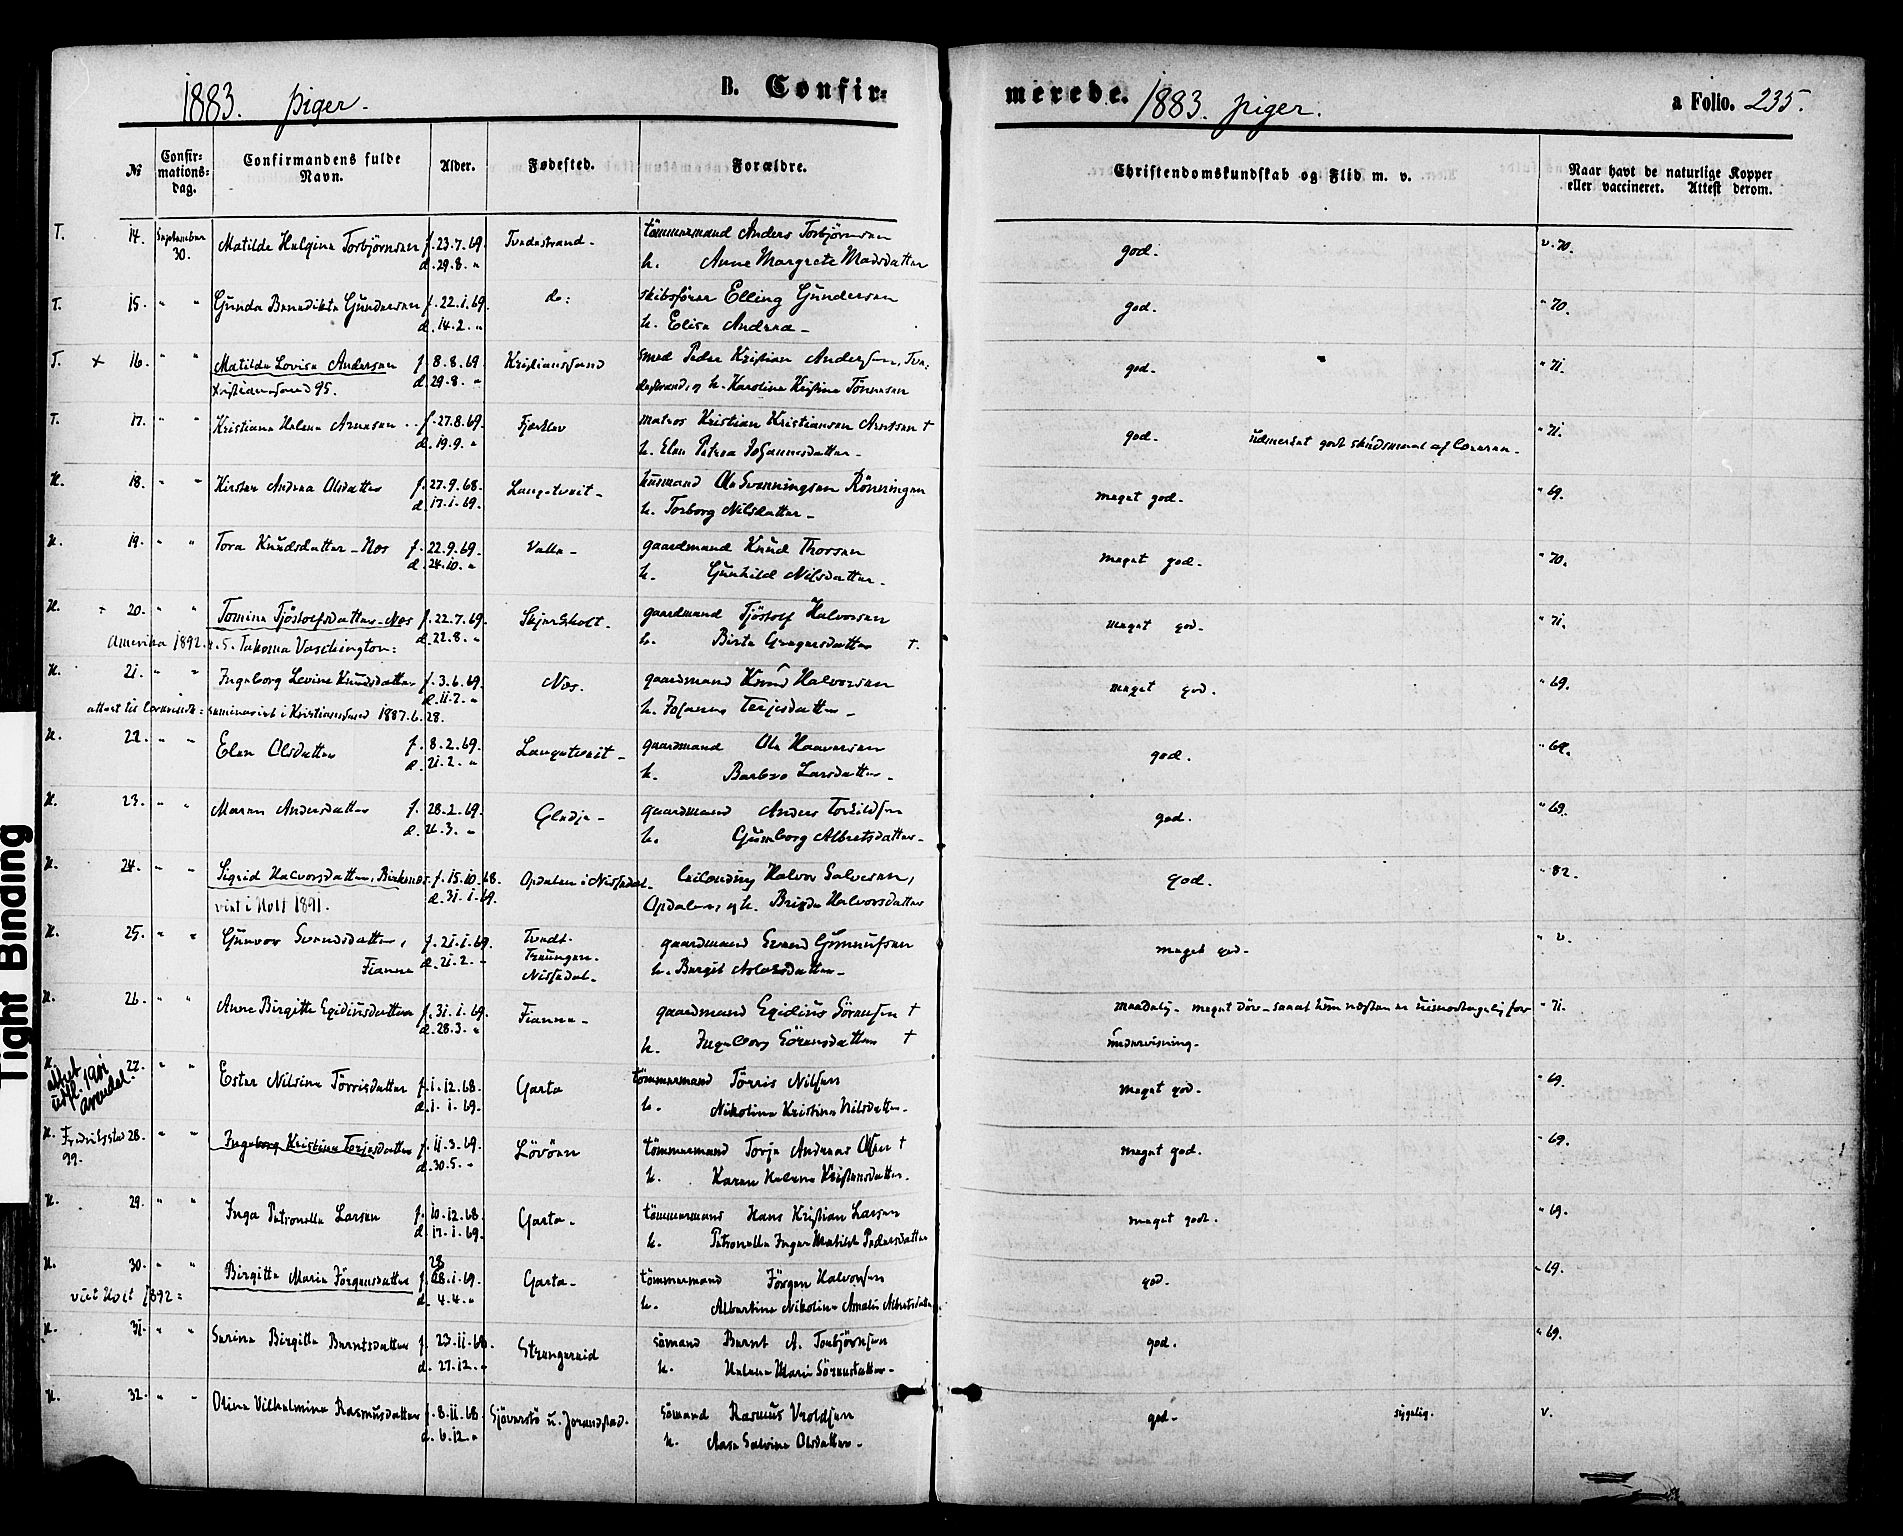 1883. piger.
B. Confir-
merede. 1883. piger.
a Folio. 235.
№
Confir-
mations-
dag.
Confirmandens fulde
Navn.
Alder.
Fødested.
Forældre.
Christendomskundskab og Flid m. v.
Naar havt de naturlige Kopper
eller vaccineret. Attest derom.
T. 14. September Matilde Helgine Torbjörnsen f. 23.7.69. Tvedestrand - tömmermand Anders Torbjörnsen god. v. 70.
30. d. 29.8. " h. Anne Margrete Madsdatter
T. 15. " " Gunda Benedikte Gundersen f. 22.1.69. do: skibsförer Elling Gundersen god. " 70.
d. 14.2. " h. Elise Andrea -
T. + 16. " " Matilde Lovise Andersen f. 8.8.69. Kristianssand smed Peder Kristian Andersen, Tve: god. " 71.
Kristianssand 95. d. 29.8. " destrand, og h. Karoline Kristine Tönnesen
T. 17. " " Kristiane Helene f. 27.8.69. matros Kristian Kristiansen Arntsen † god. udmerket godt skudsmaal af læreren. " 71.
d. 19.9. " h. Elen Petrea Johannesdatter -
H. 18. " " Kirsten Andrea Olsdatter f. 27.9.68. Langetveit - husmand Ole Svenningsen Rönningen meget god. " 69.
d. 17.1.69. h. Torborg Nilsdatter -
H. 19. " " Tora Knudsdatter - Næs f. 22.9.69. Valle - gaardmand Knud Thorsen meget god. " 70.
d. 24.10. " h. Gunhild Nilsdatter -
H. + 20. " " Tomine Tjöstolfsdatter - Næs f. 22.7.69. gaardmand Tjöstolf Halvorsen meget god. " 71.
Amerika 1892. Takoma Vaschington: d. 22.8. " h. Birte Gregersdatter †.
H. 21. " " Ingeborg Levine Knudsdatter f. 3.6.69. Næs. gaardmand Knud Halvorsen meget god. " 69.
attest til lærerinde = seminariet i Kristianssand 1887. 6. 28. d. 11.7. " h. Johanne Terjesdatter -
H. 22. " " Elen Olsdatter f. 8.2.69. Langetveit - gaardmand Ole Haaversen god. " 69.
d. 21.2. " h. Barbro Larsdatter -
H. 23. " " Maren Andersdatter f. 28.2.69. Gledje - gaardmand Anders Torkildsen god. " 69.
d. 21.3. " h. Gunnborg Albretsdatter -
H. 24. " " Sigrid Halvorsdatter, Birkenes f. 15.10.68. Opdalen i Nissedal. leilænding Halvor Salvesen, god. " 82.
viet i Holt 1891. d. 31.1.69. Opdalen, og h. Halvorsdatter
H. 25. " " Gunvor Svendsdatter, f. 21.1.69. Tvedt. gaardmand Svend Gunnufsen meget god. " v.
Fianne d. 21.2. " Treungen. h. Bergit Aslaksdatter -
Nissedal.
H. 26. " " Anne Birgitte Egidiusdatter f. 31.1.69. Fianne - gaardmand Egidius Sörensen † maadelig - meget döv - samt hun næsten er uimodtagelig for " 71.
d. 28.3. " h. Ingeborg Sörensdatter † undervisning.
H. 27. Ester Nilsine Törrisdatter f. 1.12.68. Garta tömmermand Törris Nilsen meget god. " 69.
attest udfl. 1901 Arendal. d. 1.1.69. h. Nikoline Kristine Nilsdatter.
H. Fredriksstad 28. " " Ingeborg Kristine Terjesdatter f. 11.3.69. Lövöen tömmermand Terje Andreas Olsen † meget god. " 69.
99. d. 30.5. " h. Karen Helene Kristensdatter.
H. 29. " " Inga Petronelle Larsen f. 10.12.68. Garta - tömmermand Hans Kristian Larsen meget god. " 69.
d. 17.1.69. h. Petronelle Inger Matilde Pedersdatter
H. 30. " " Birgitte Marie Jörgensdatter f. 28.1.69. Garta - tömmermand Jörgen Halvorsen god. " 69.
28
viet Holt 1892 = d. 4.4. " h. Albertine Nikoline Amalie Albretsdatter
H. 31. " " Serine Birgitte Berntsdatter f. 23.11.68. Strengereid sömand Bernt A. Torbjörnsen god. " 69.
d. 27.12. " h. Helene Marie Sörensdatter -
H. 32. " " Oline Vilhelmine Rasmusdatter f. 8.11.68. sömand Rasmus god - sygelig. v.
d. 6.12. " h. Aase Salvine Olsdatter -
Tight Binding